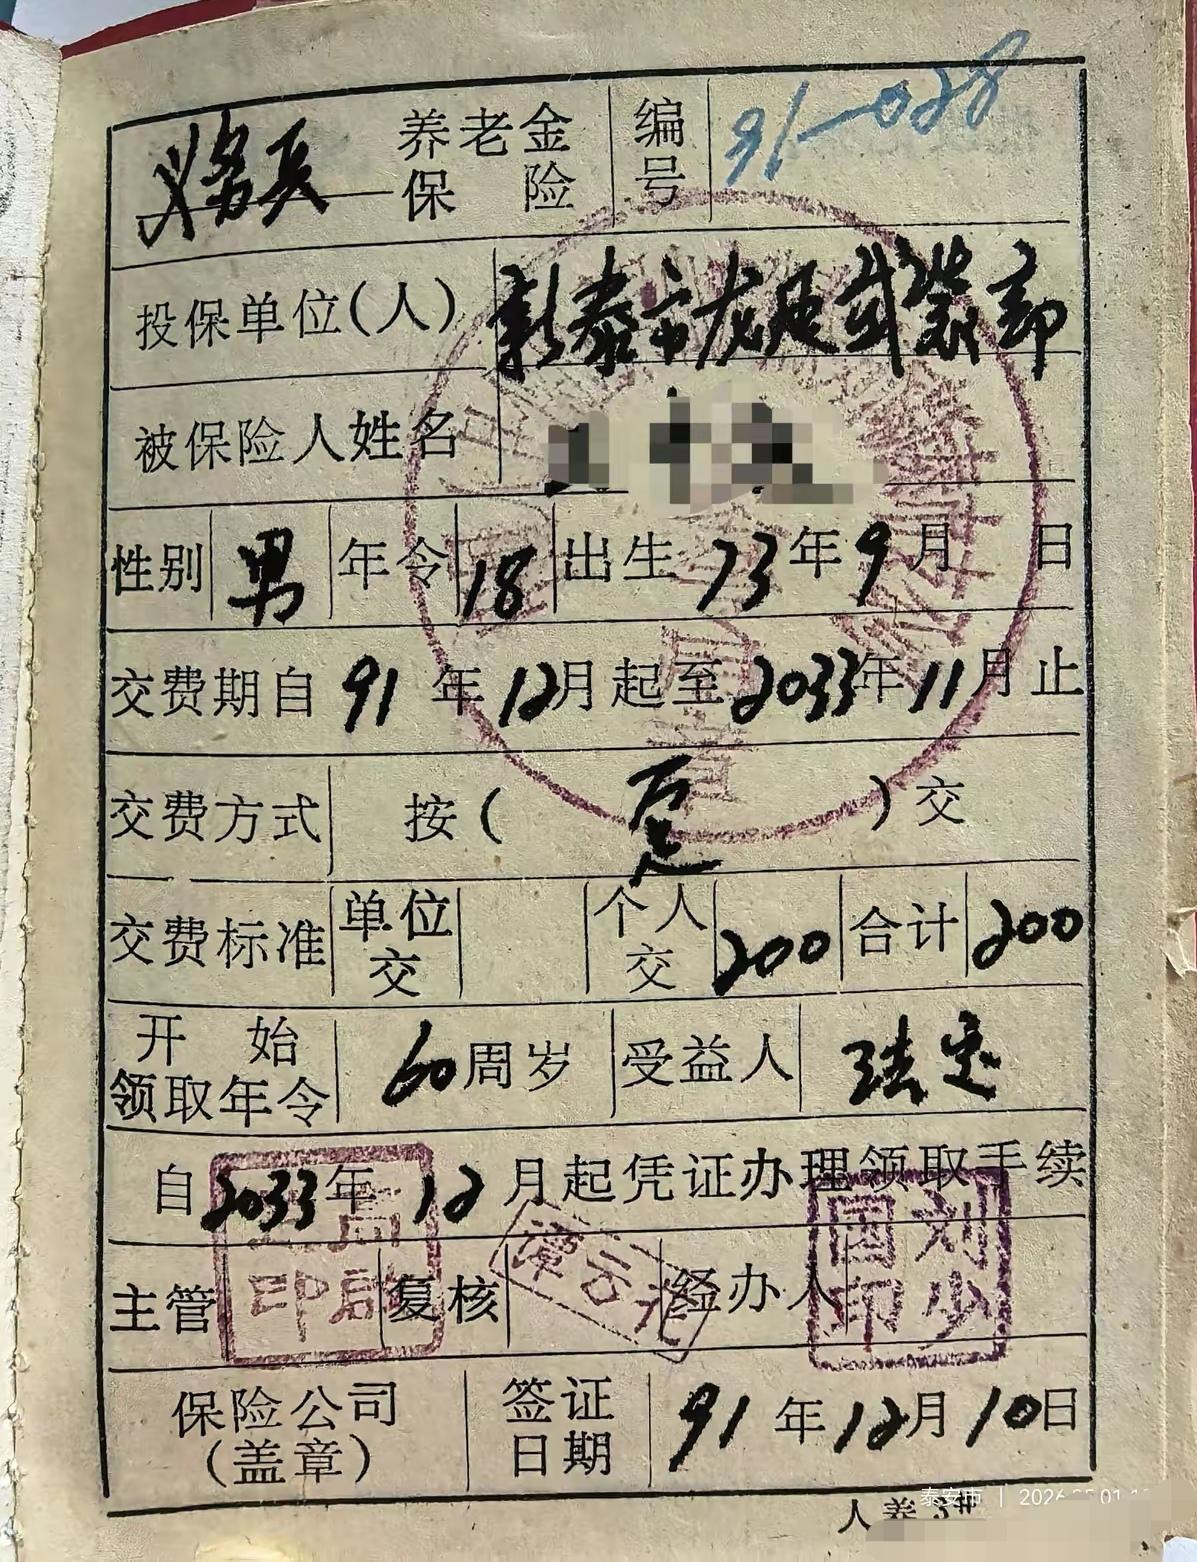 义务兵 养老金保险 编号 91-028
投保单位(人) 新泰市龙廷武装部
被保险人姓名
性别 男 年令 18 出生 73年9月 日
交费期自91年12月起至2033年11月止
交费方式 按( 趸 )交
交费标准 单位交 个人交 200 合计 200
开始领取年令 60周岁 受益人 法定
自2033年12月起凭证办理领取手续
主管 复核 经办人 刘少国印
保险公司(盖章) 签证日期 91年12月10日
人养3#
泰安市